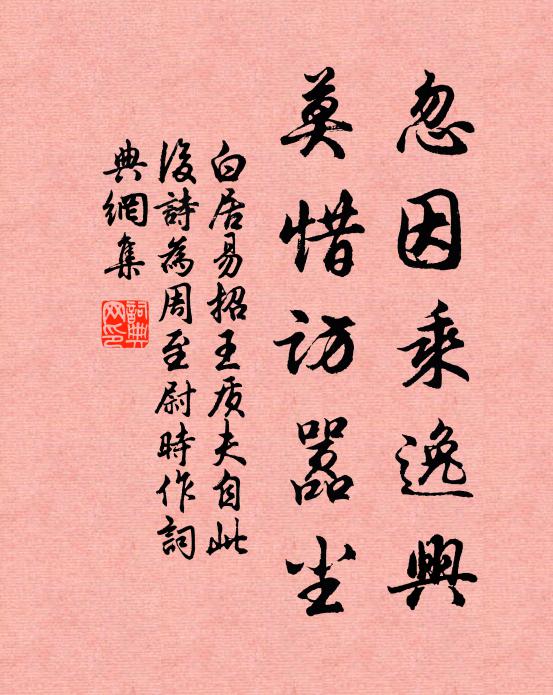 忽因乘逸興
莫惜訪嚣尘
白居易招王质夫自此
後詩為周至尉時作詞
典網集
詞典网印